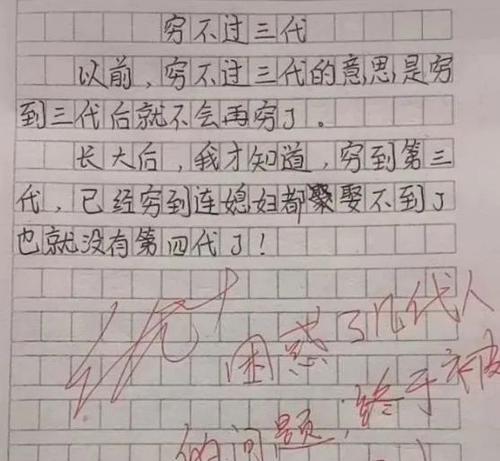 穷不过三代
以前，穷不过三代的意思是穷
到三代后就不会再穷了。
长大后，我才知道，穷到第三
代，已经穷到连媳妇都娶不到了
也就没有第四代了！
优+
困惑了几代人
的问题，终于被